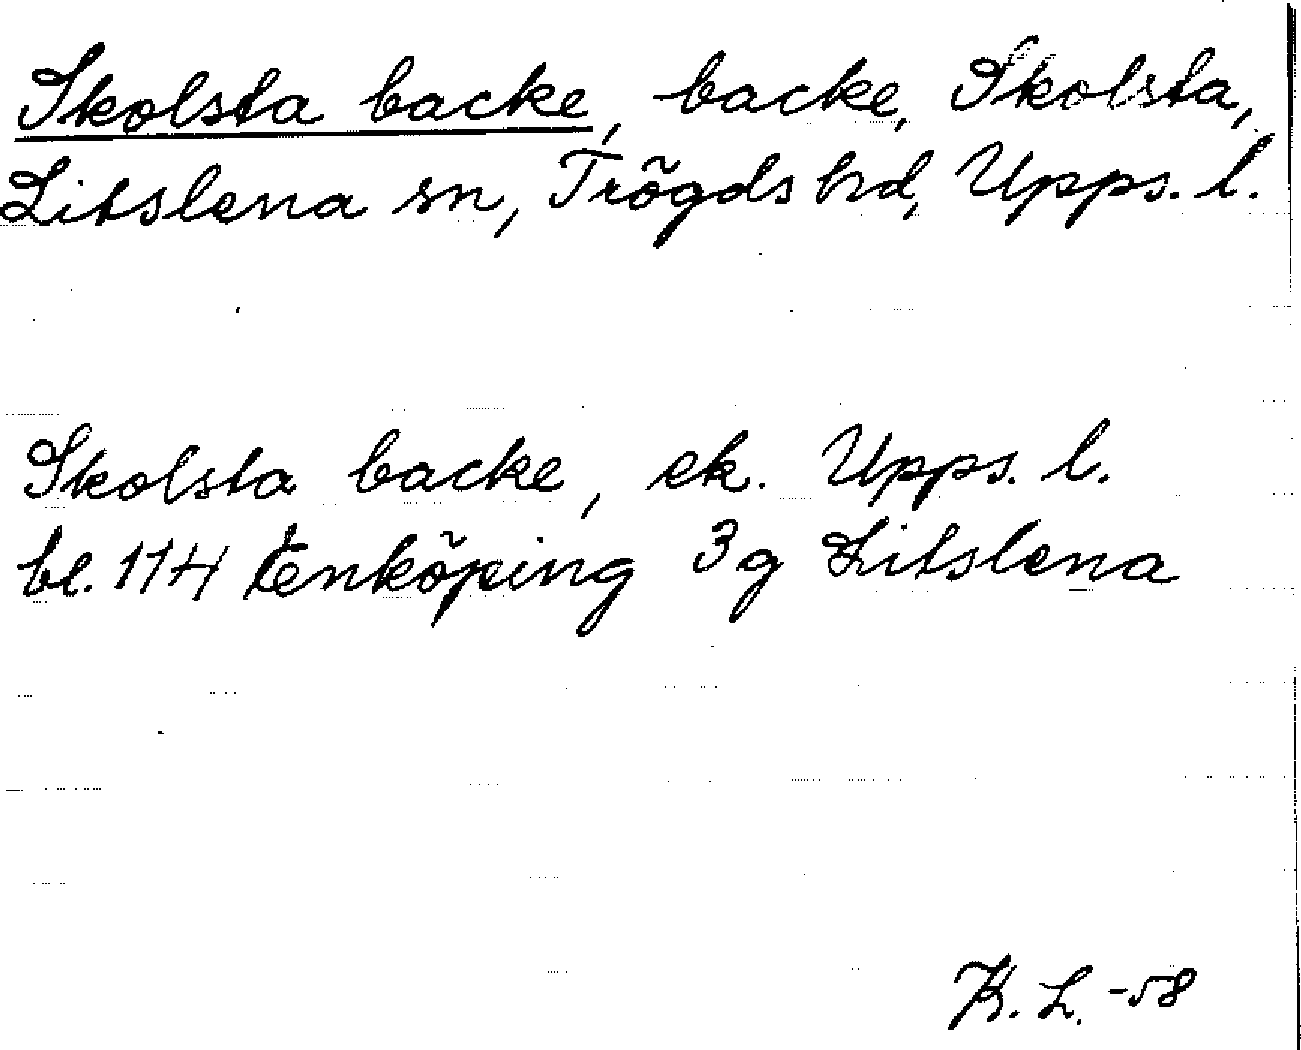 Skolsta backe, backe, Skolsta,
Litslena sn, Trögds hd, Upps. l.
Skolsta backe, ek. Upps. l.
bl. 114 Enköping 3g Litslena
K. L. -58